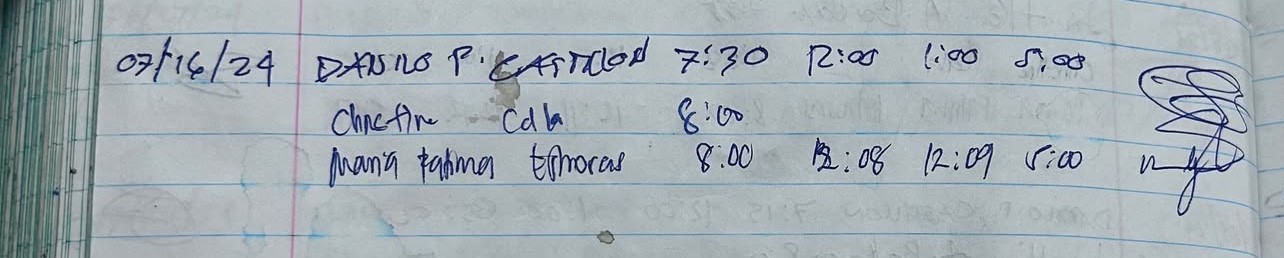 07/16/24 DANILO P. CASTILLON 7:30 12:00 1:00 5:00
Christine 8:00
Maria Fatima 8:00 12:08 12:09 5:00